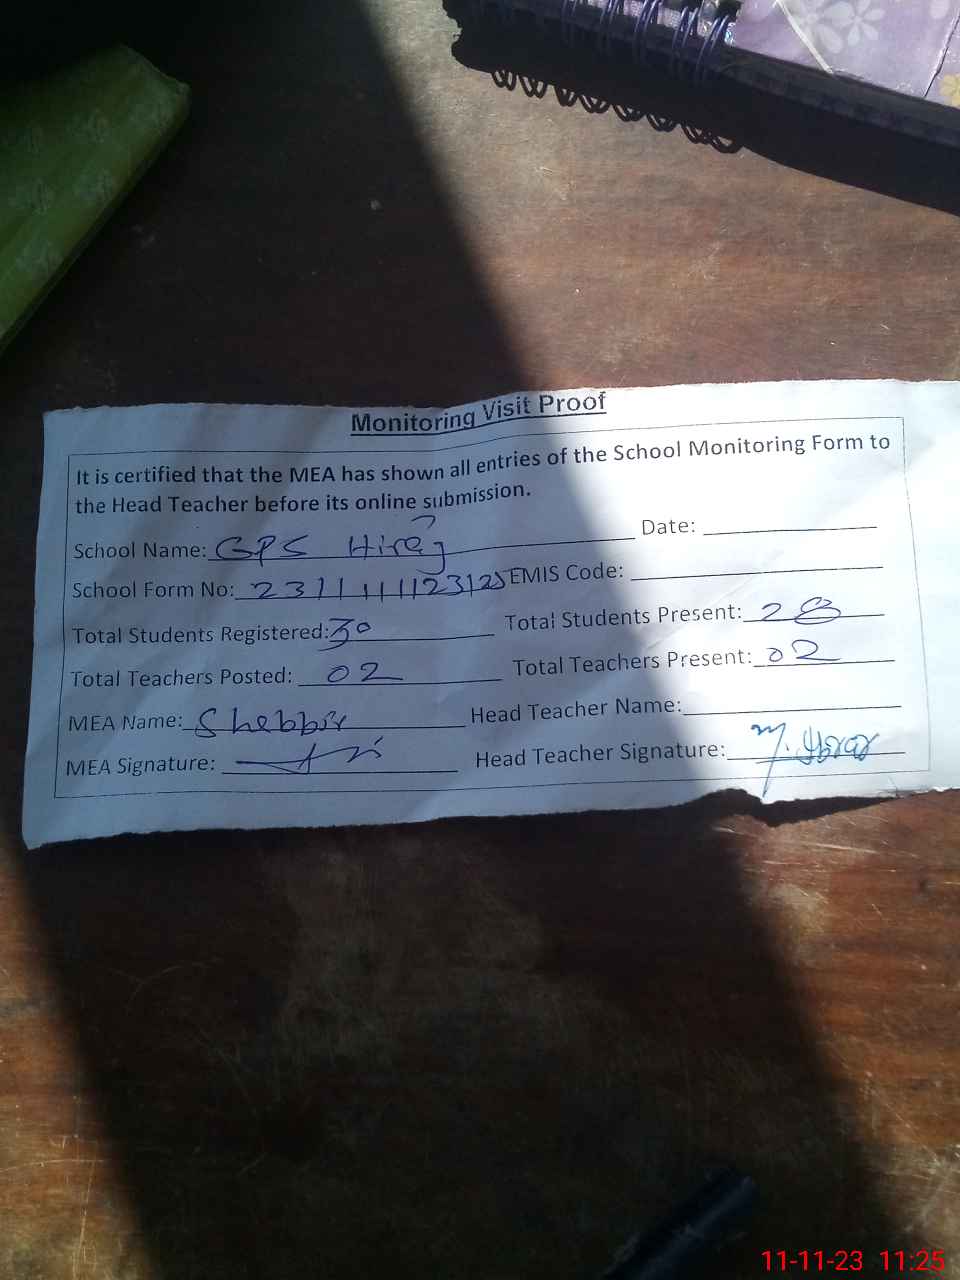 Monitoring Visit Proof
It is certified that the MEA has shown all entries of the School Monitoring Form to
the Head Teacher before its online submission.
School Name: GPS Hiraj Date:
School Form No: EMIS Code:
Total Students Registered: 30 Total Students Present: 28
Total Teachers Posted: 02 Total Teachers Present: 02
MEA Name: Shebbir Head Teacher Name:
MEA Signature: Head Teacher Signature:
11-11-23 11:25